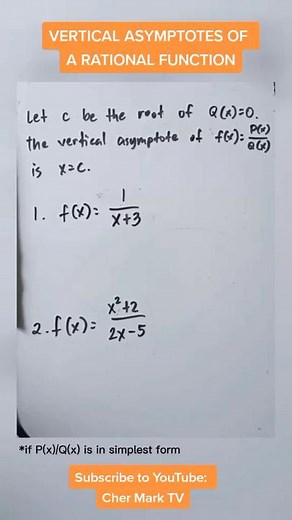 VERTICAL ASYMPTOTES OF
A RATIONAL FUNCTION
Let c be the root of Q(x)=0.
The vertical asymptote of f(x)=P(x)/Q(x)
is x=c.
1. f(x)= 1/(x+3)
2. f(x)= (x²+2)/(2x-5)
*if P(x)/Q(x) is in simplest form
Subscribe to YouTube:
Cher Mark TV